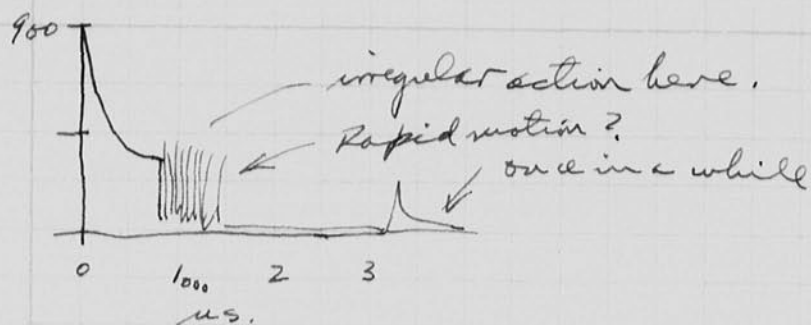 900
irregular action here.
Rapid motion?
once in a while
0 1000 2 3
μs.